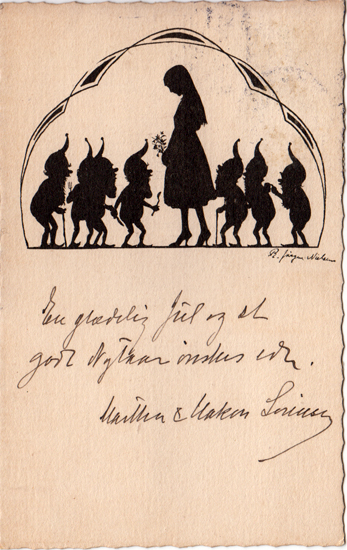 R. Jørgen Nielsen
En glædelig Jul og et
godt Nytaar ønskes eder.
Martha & Hakon Sørensen